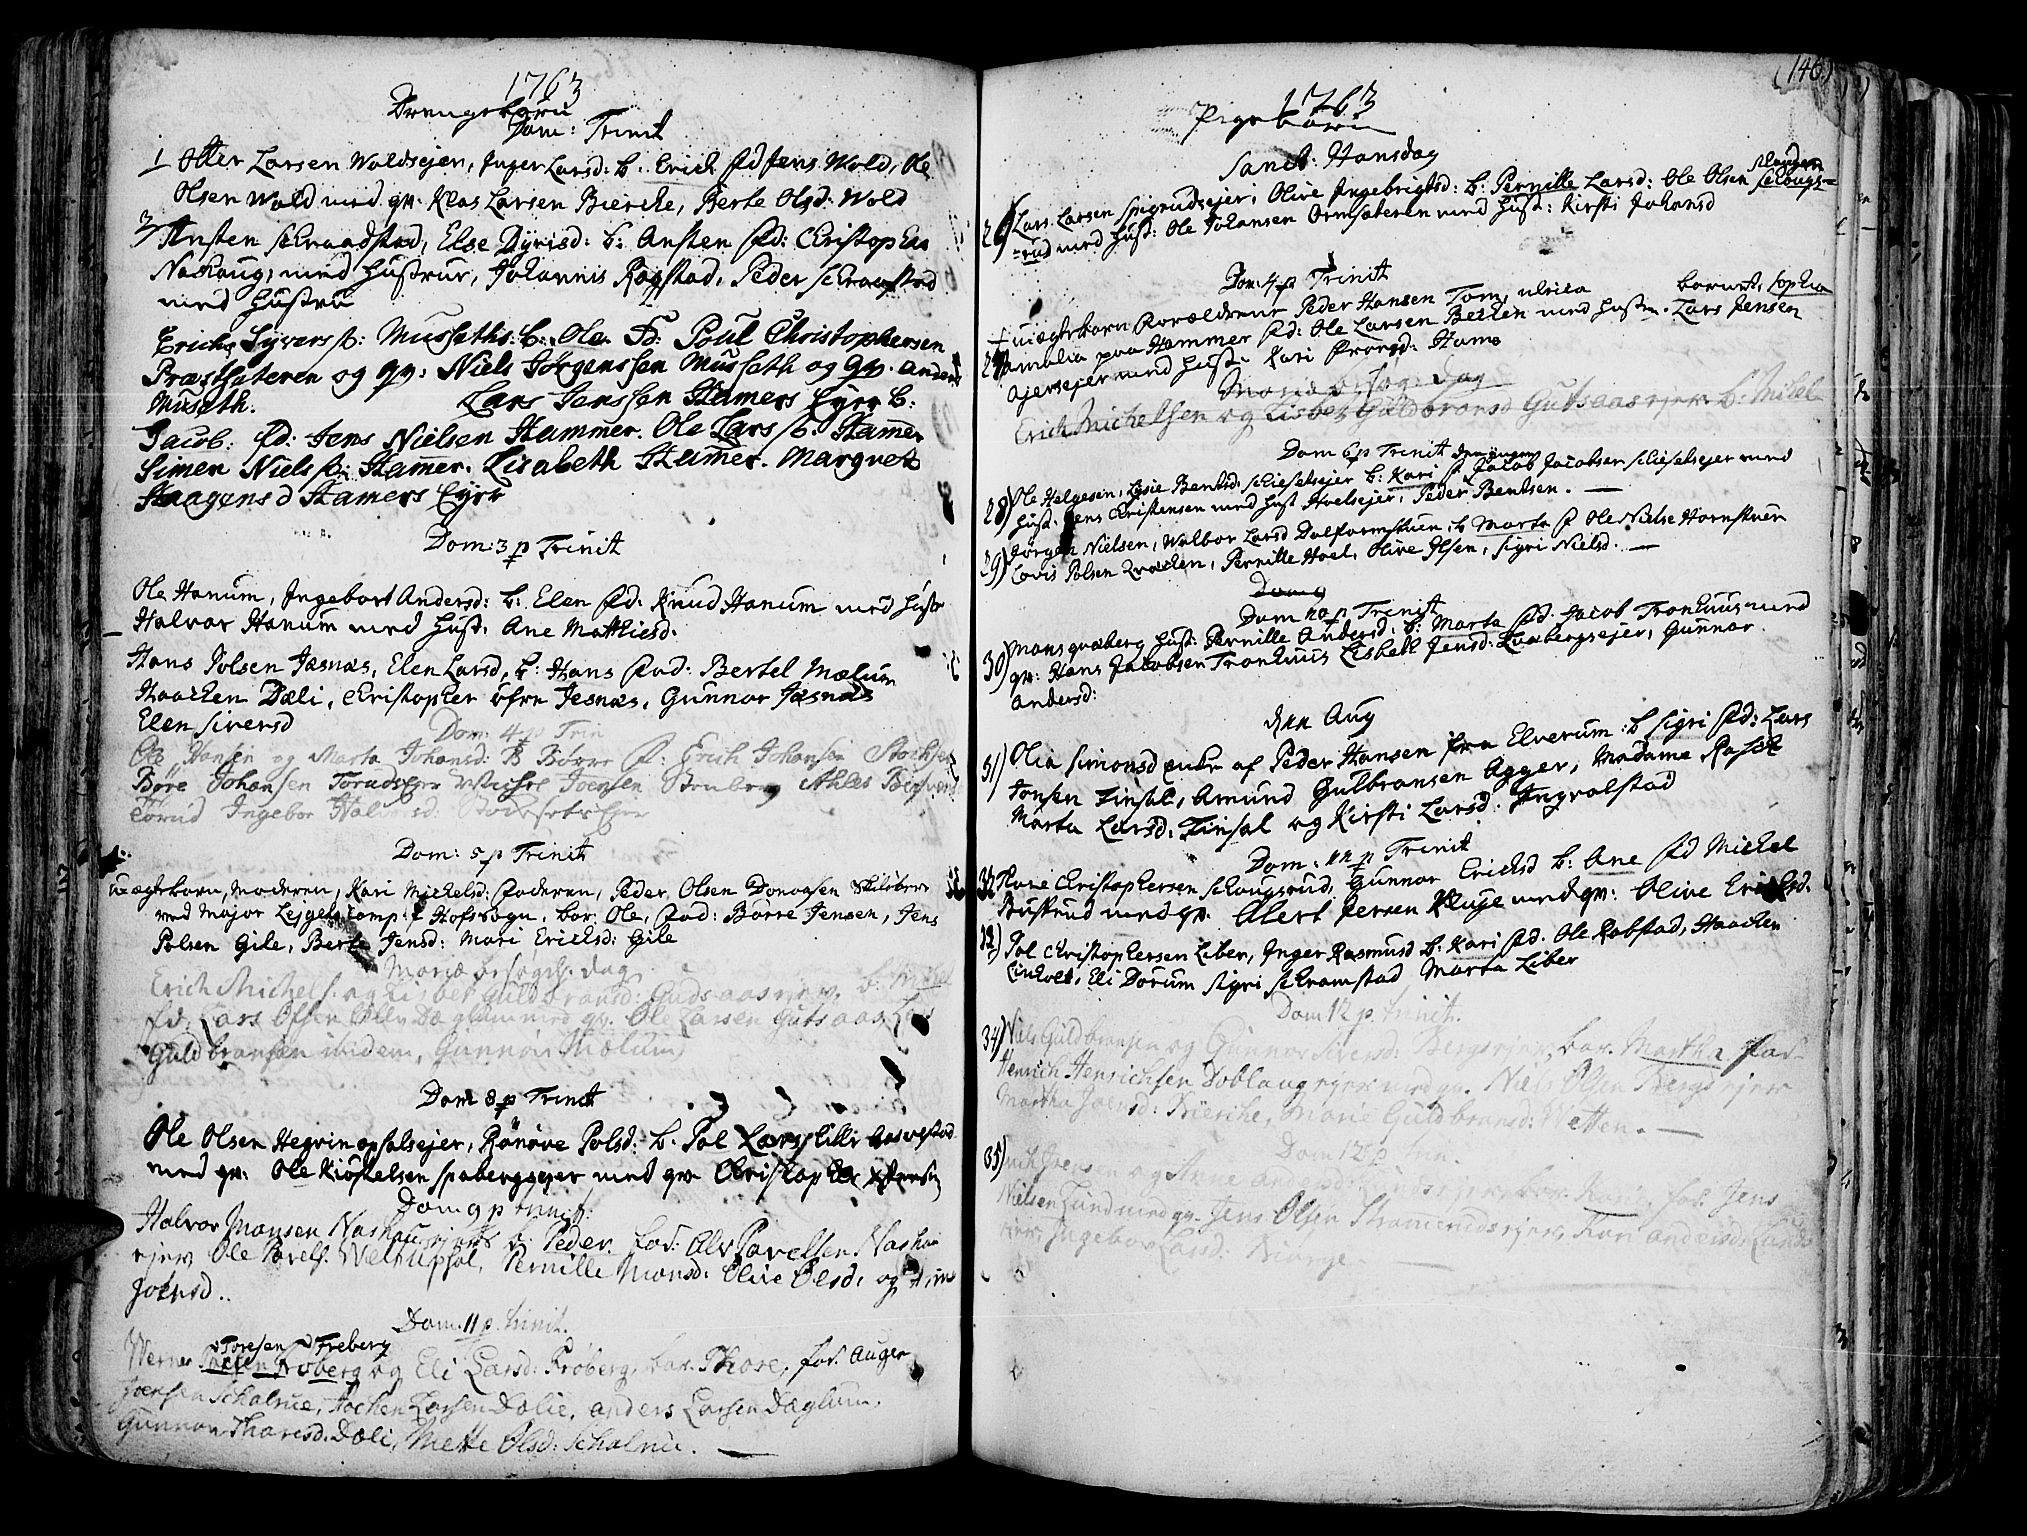 1763
Drengebørn
Dom: Trinit
1 Otter Larsen Woldsejer, Inger Larsd: b. Erich fd Jens Wold, Ole
Olsen Wold med qv: Klas Larsen Bierche, Berte Olsd: Wold
3 Ansten schraadstad, Else Dyrisd: b: Ansten fd: Christopher
Nashoug, med hustrue, Johannis Rogstad, Peder schramstad
med hustru
Erich Syvers f. Musseths: b: Ole Fd: Poul Christophersen
Præsthsæteren og qv: Niels Jørgenssen Musseth og qv. anders
Museth. Lars Jenssen Hamers Eyer b:
Jacob: fd: Jens Nielsen Hammer. Ole Lars f. Hamer
Simen Niels f: Hamer. Lisabeth Hamer. Margret
Haagens d Hamers Eyer
Dom: 3 p Trinit
Ole Hanum, Ingebort Andersd: b: Elen fd: Knud Hanum med hustr
Halvor Hanum med hust. Ane Matthisd.
Hans Polsen Jasnæs, Elen Larsd, b: Hans fad: Bertel Mælum
Haachen Dæli, Christopher øfre Jesnæs, Gunnor Jasnæs
Elen siversd
Dom: 4 p Trin
Ole Hansen og Marta Johansd: B Børre f: Erich Johansen Stochset
Børe Johansen Torudseyer Michel Joensen Stenberg
Torud Ingebor Halvorsd: Stochsetseyer
Dom: 5 p Trinit
uægtebarn, moderen, Kari Michelsd: faderen, Peder Olsen Donvogsen skiløber
ved Major Lejgels Comp: f Hofsogn. bar: Ole, fad: Børre Jensen, Jens
Polsen Gile, Berte Jensd: Mari Erichsd: Gile
Mariæ besøgels. dag
Erich Michels f. og Lisbet Guldbransd: Gudsaasejer, b: Michel
fd. Lars Olsen Dæglum med qv. Ole Larsen Gutsaas, Lars
Guldbransen ibidem, Gunnor Mælum
Dom 8 p Trinit
Ole Olsen Hegvin opsalsejer, Rønøve Polsd: b. Pol Lars Lille
med qv: Ole Kiøstelsen spabergsejer med qv Christopher
Dom 9 p trinit:
Halvor Monsen Nashougsejer b: Peder. fad: Alv Pavelsen Nashou
ejer, Ole Pavels. Vestupsal, Pernille Monsd: Olive Olsd: og Ane
Joensd..
Dom. 11 p. trinit.
Toresen Freberg
Werner Frøberg og Eli Larsd: Frøberg, bar. Thore, fad. Auger
Joensen Schalrue, Hochen Larsen Dælie, anders Larsen Dæglum,
Gunnor Thoresd. Dæli, Mette Olsd: Schalrue. —
(146)
1763
Pigebørn
Sanct: Hansdag
26) Lars Larsen Spigrudsejer, Olive Ingebrigtsd: b: Pernille Larsd: Ole Olsen schougs=
=rud med hust: Ole Johansen Ormsæteren med hust: Kirsti Johansd
Dom: 4 p Trinit
27) uægtebarn foræeldrene Peder Hansen Tom, ulrica barnet, Sophia
amalia paa Hammer fd: Ole Larsen Bechen med hust. Lars Jensen
ejersejer med hust. Kari Frorsd: Ham
Mariæ besøgs dag
Erich Michelsen og Lisbet Guldbransd Gutsaasejer b: Michel
Dom 6 p Trinit
28) Ole Helgesen, Lisie Bentsd: schieselsejer b: Kari f Jacob Jacobsen schieselsejer med
hust. Jens Christensen med hust Hvelsejer, Peder Bentsen. —
29) Jørgen Nielsen, Walbor Larsd Dalfarmstuen, b Marta f Ole Nielse Hornstuen
Lovis Polsen Kvachen, Pernille Hoel, Olive Ilsen, sigri Nielsd. —
Dom 9
Dom 10 p Trinit
30) Mons qvæberg hust: Pernille Andersd: b: Marta fd: Jacob Tronhuus med
qv: Hans Jacobsen Tronhuus Lisbeth Jensd: Kvæbergsejer, Gunnor
Andersd:
d. 11 Aug
31) Olia simonsd enke af Peder Hansen fra Elverum: b sigri fd: Lars
Jonsen Finsal, Amund Gulbransen Agger, Madame Raschk
Marta Larsd: Finsal og Kirsti Larsd. Ingvalstad
Dom: 11 p Trinit
32) Tore Christophersen schougsrud, Gunnor Erichsd b: Ane fd Michel
Brustrud med qv. Ellert Persen Kluge med qv: Olive Erichsd.
33) Pol Christophersen Liber, Inger Rasmusd b: Kari fd. Ole Robstad, Haachen
Lindvet, Eli Dørum sigri schramstad Marta Liber
Dom 12 p trinit.
34) Niels Guldbransen og Gunnor Siversd: Bergsejer, bar. Martha fad.
Henrich Henrichsen Doblaug ejer med qv. Niels Olsen Bergsejer
Martha Joensd: Kierche, Marie Guldbransd: Wetten. —
Dom 12 p trin.
35) Erich Joensen og Anne andersd: Lundsejer, bar. Kari, fad. Jens
Nielsen Lund med qv. Jens Olsen Strandsejer, Kari andersd: Lunds
ejer, Ingebor Larsd: